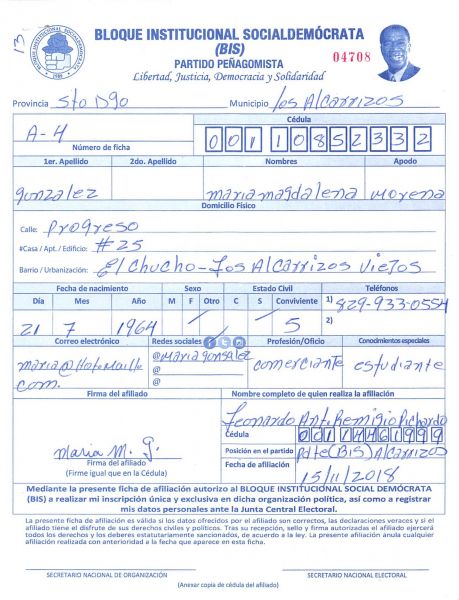 13
BLOQUE INSTITUCIONAL SOCIALDEMÓCRATA
(BIS)
PARTIDO PEÑAGOMISTA
Libertad, Justicia, Democracia y Solidaridad
04708
Provincia Sto Dgo Municipio Los Alcarrizos
A-4
Número de ficha
Cédula
00110852332
1er. Apellido 2do. Apellido Nombres Apodo
gonzalez maria magdalena morena
Domicilio Físico
Calle: Progreso
#Casa / Apt. / Edificio: #25
Barrio / Urbanización: El chucho - Los Alcarrizos Viejos
Fecha de nacimiento Sexo Estado Civil Teléfonos
Día Mes Año M F Otro C S Conviviente 1) 829-933-0554
21 7 1964 / 5 2)
Correo electrónico Redes sociales Profesión/Oficio Conocimientos especiales
maria@Hotmaille com. @maria gonsalez comerciante estudiante
@
@
Firma del afiliado Nombre completo de quien realiza la afiliación
Leonardo Ant. Remigio Richardo
Cédula
00117461999
Maria M. G.
Posición en el partido Pdte (BIS) Alcarrizos
Firma del afiliado
(Firme igual que en la Cédula)
Fecha de afiliación 15/11/2018
Mediante la presente ficha de afiliación autorizo al BLOQUE INSTITUCIONAL SOCIAL DEMÓCRATA
(BIS) a realizar mi inscripción única y exclusiva en dicha organización política, así como a registrar
mis datos personales ante la Junta Central Electoral.
La presente ficha de afiliación es válida si los datos ofrecidos por el afiliado son correctos, las declaraciones veraces y si el
afiliado tiene el disfrute de sus derechos civiles y políticos. Tras su recepción, sello y firma autorizados el afiliado ejercerá
todos los derechos y los deberes estatutariamente sancionados, de acuerdo a la ley. La presente afiliación anula cualquier
afiliación realizada con anterioridad a la fecha que aparece en esta ficha.
SECRETARIO NACIONAL DE ORGANIZACIÓN SECRETARIO NACIONAL ELECTORAL
(Anexar copia de cédula del afiliado)